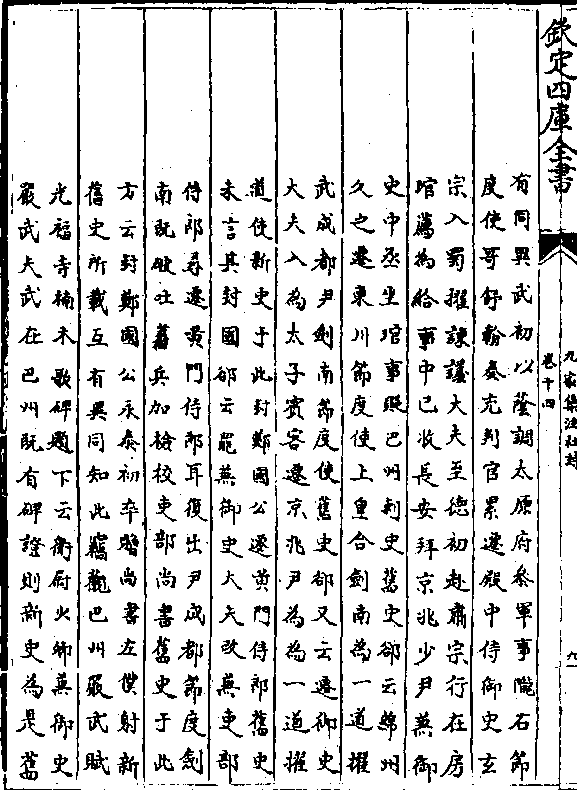 欽定四庫全書
九家集注杜詩
卷十四
有同異武初以蔭調太原府參軍事隴右節
度使哥舒翰奏充判官累遷殿中侍御史玄
宗入蜀擢諫議大夫至德初赴肅宗行在房
琯薦為給事中已收長安拜京兆少尹兼御
史中丞坐琯事貶巴州刺史舊史郤云綿州
久之遷東川節度使上皇合劍南為一道擢
武成都尹劍南節度使舊史郤又云遷御史
大夫入為太子賓客遷京兆尹為為一道擢
道使新史于此封鄭國公遷黃門侍郎舊史
未言其封國郤云罷兼御史大夫改兼吏部
侍郎尋遷黃門侍郎耳復出尹成都節度劍
南既破吐蕃兵加檢校吏部尚書舊史于此
方云封鄭國公永泰初卒贈尚書左僕射新
舊史所載互有異同如此舊巴州嚴武賦
光福寺楠木歌碑題下云衛尉少卿兼御史
嚴武夫武在巴州既有碑證則新史為是舊